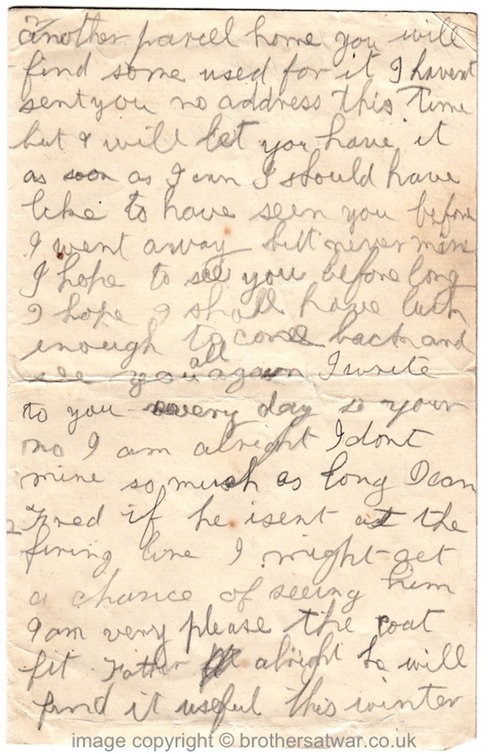 another parcel home you will
find some used for it I havent
sent you no address this time
but I will let you have it
as soon as I can I should have
like to have seen you before
I went away but never mine
I hope to see you before long
I hope I shall have luck
enough to come back and
see you all again I write
to you every day so your
no I am alright I dont
mine so much as long Dear
Fred if he isent at the
firing line I might get
a chance of seeing him
I am very please the coat
fit Father alright he will
find it useful this winter
image copyright © brothersatwar.co.uk